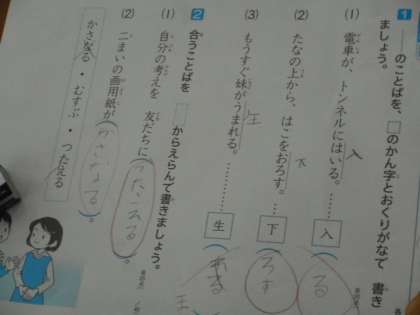 1 ＿＿のことばを、□のかん字とおくりがなで 書き
ましょう。
(1) 電車が、トンネルにはいる。 入 入 る
(2) たなの上から、はこをおろす。 下 下 ろす
(3) もうすぐ妹がうまれる。 生 生
2 合うことばを からえらんで書きましょう。
(1) 自分の考えを 友だちに（つたえる）。
(2) 二まいの画用紙が（かさなる）。
かさなる・むすぶ・つたえる